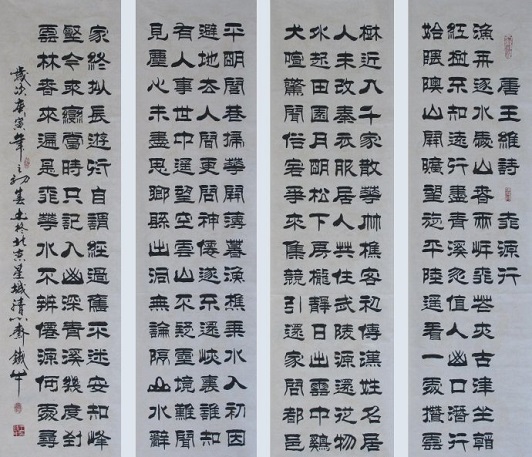 唐王維詩 桃源行
漁舟逐水愛山春兩岸桃花夾古津坐看
紅樹不知遠行盡青溪忽值人山口潛行
始隈隩山開曠望旋平陸遙看一處攢雲
樹近入千家散華竹樵客初傳漢姓名居
人未改秦衣服居人共住武陵源還從物
外起田園月明松下房櫳靜日出雲中雞
犬喧驚聞俗客爭來集競引還家問都邑
平明閭巷掃華開薄暮漁樵乘水入初因
避地去人間更問神僊遂不還峽裏誰知
有人事世中遙望空雲山不疑靈境難聞
見塵心未盡思鄉縣出洞無論隔山水辭
家終擬長遊衍自謂經過舊不迷安知峰
壑今來變當時只記入山深青溪幾度到
雲林春來遍是桃華水不辨僊源何處尋
歲次庚寅年之初春書於北京星城清心齋鐵牛